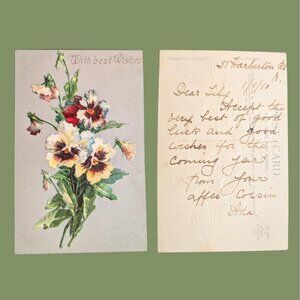 With best Wishes
51 Harberton Rd
N.
Dear Lily
Accept the
very best of good
luck and good
wishes for the
coming year
from your
affec Cousin
Ada.